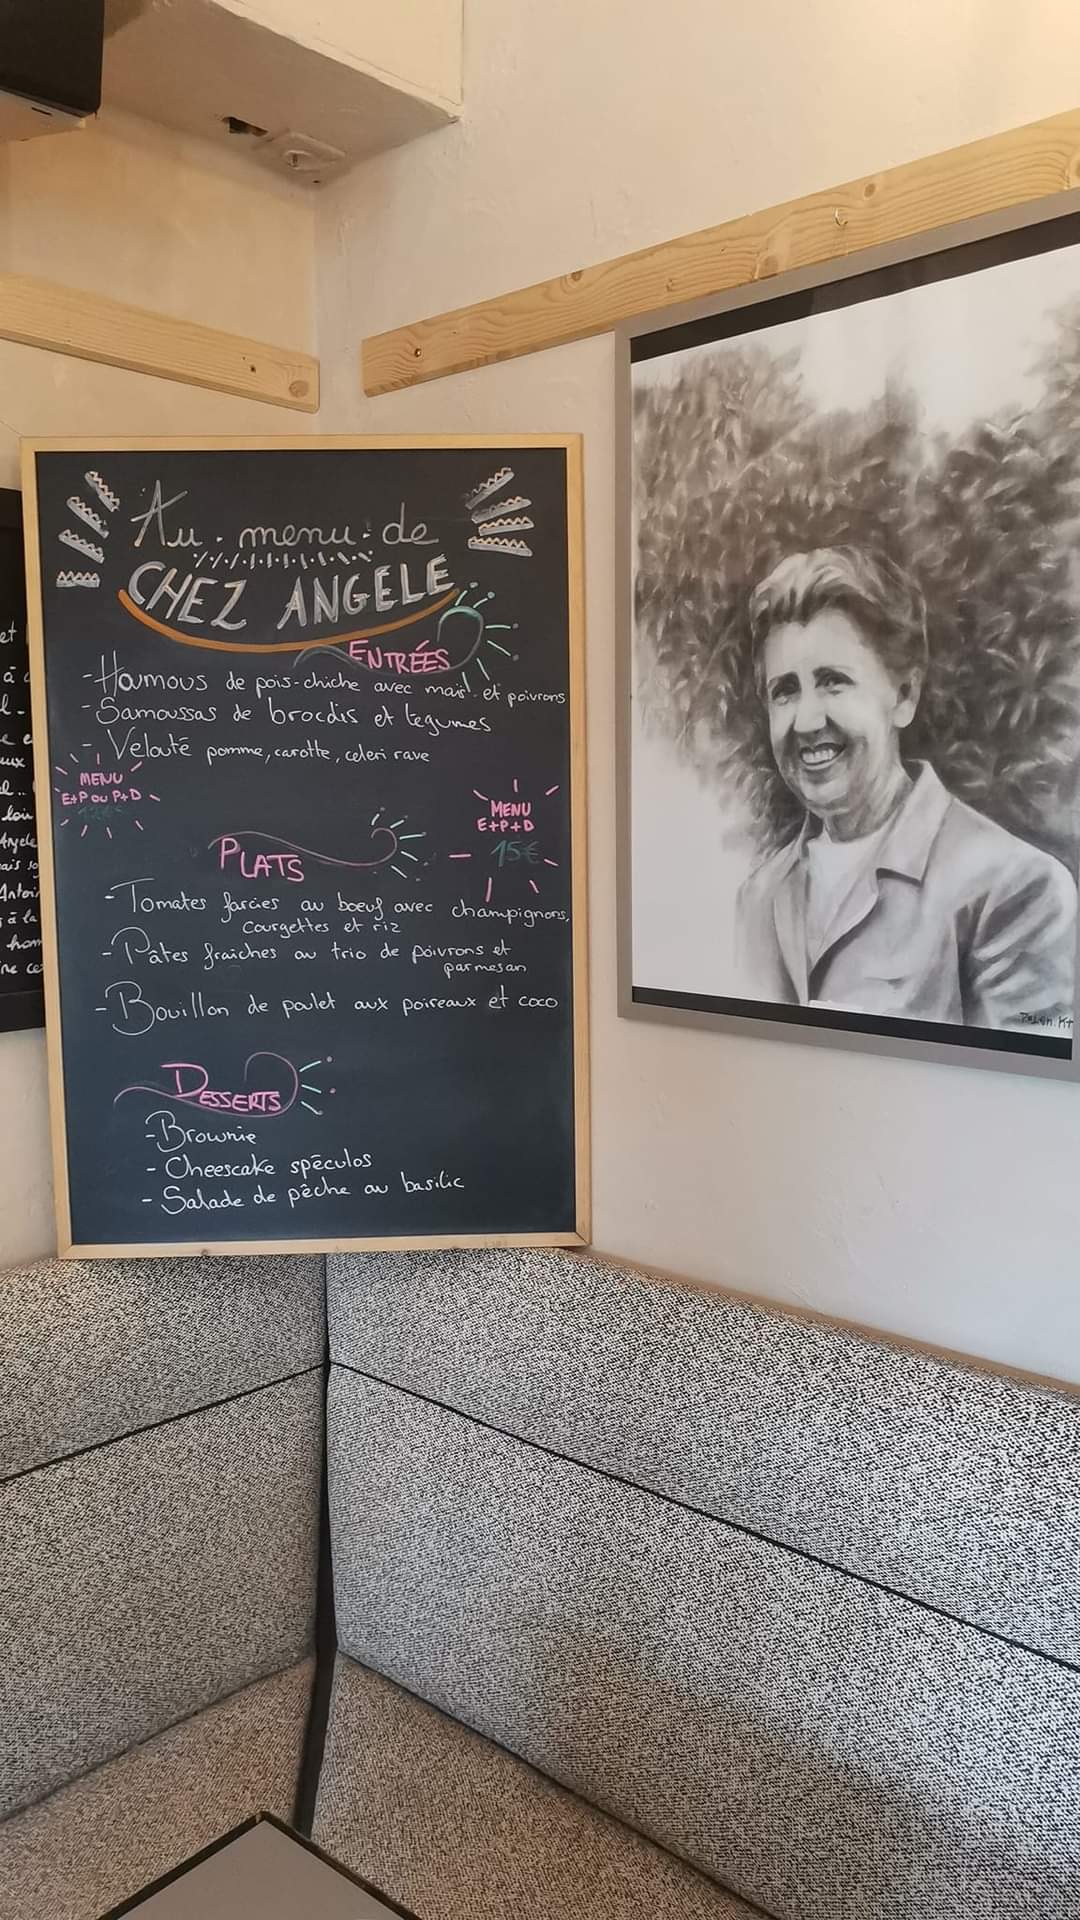 Au menu de
CHEZ ANGELE
ENTRÉES
- Houmous de pois-chiche avec maïs et poivrons
- Samoussas de brocolis et légumes
- Velouté pomme, carotte, celeri rave
MENU
E+P ou P+D
MENU
E+P+D
15€
PLATS
- Tomates farcies au boeuf avec champignons,
courgettes et riz
- Pâtes fraîches au trio de poivrons et
parmesan
- Bouillon de poulet aux poireaux et coco
DESSERTS
- Brownie
- Cheescake spéculos
- Salade de pêche au basilic
et
à
Angele
Antoi
à la
hom